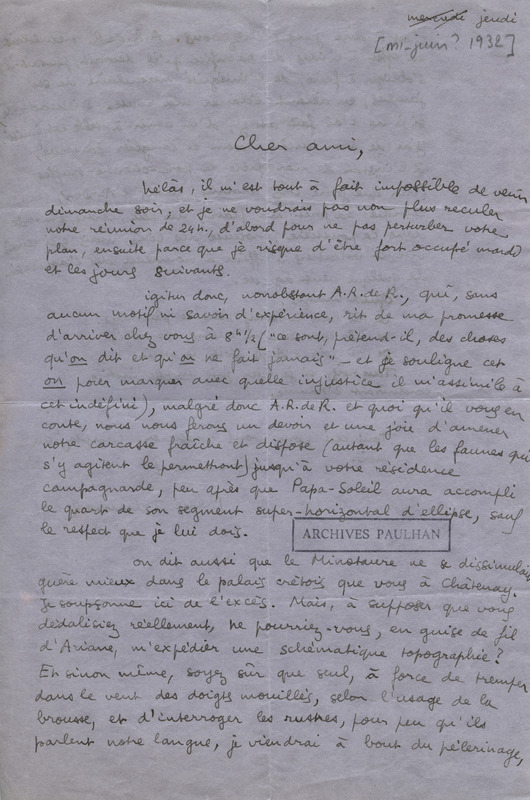 mercredi jeudi
[mi-juin? 1932]
Cher ami,
hélàs, il m'est tout à fait impossible de venir
dimanche soir, et je ne voudrais pas non plus reculer
notre réunion de 24h., d'abord pour ne pas perturber votre
plan, ensuite parce que je risque d'être fort occupé mardi
et les jours suivants.
igitur donc, nonobstant A.R. de R., qui, sans
aucun motif ni savoir d'expérience, rit de ma promesse
d'arriver chez vous à 8h 1/2 ("ce sont, prétend-il, des choses
qu'on dit et qu'on ne fait jamais" – et je souligne cet
on pour marquer avec quelle injustice il m'assimile à
cet indéfini), malgré donc A.R. de R. et quoi qu'il vous en
conte, nous nous ferons un devoir et une joie d'amener
notre carcasse fraîche et dispose (autant que les faunes qui
s'y agitent le permettront) jusqu'à votre résidence
campagnarde, peu après que Papa-Soleil aura accompli
le quart de son segment super-horizontal d'ellipse, sauf
le respect que je lui dois.
ARCHIVES PAULHAN
on dit aussi que le Minotaure ne se dissimulait
guère mieux dans le palais crétois que vous à Châtenay.
Je soupçonne ici de l'excès. Mais, à supposer que vous
dédalisiez réellement, ne pourriez-vous, en guise de fil
d'Ariane, m'expédier une schématique topographie?
Et sinon même, soyez sûr que seul, à force de tremper
dans le vent des doigts mouillés, selon l'usage de la
brousse, et d'interroger les rustres, pour peu qu'ils
parlent notre langue, je viendrai à bout du pèlerinage,